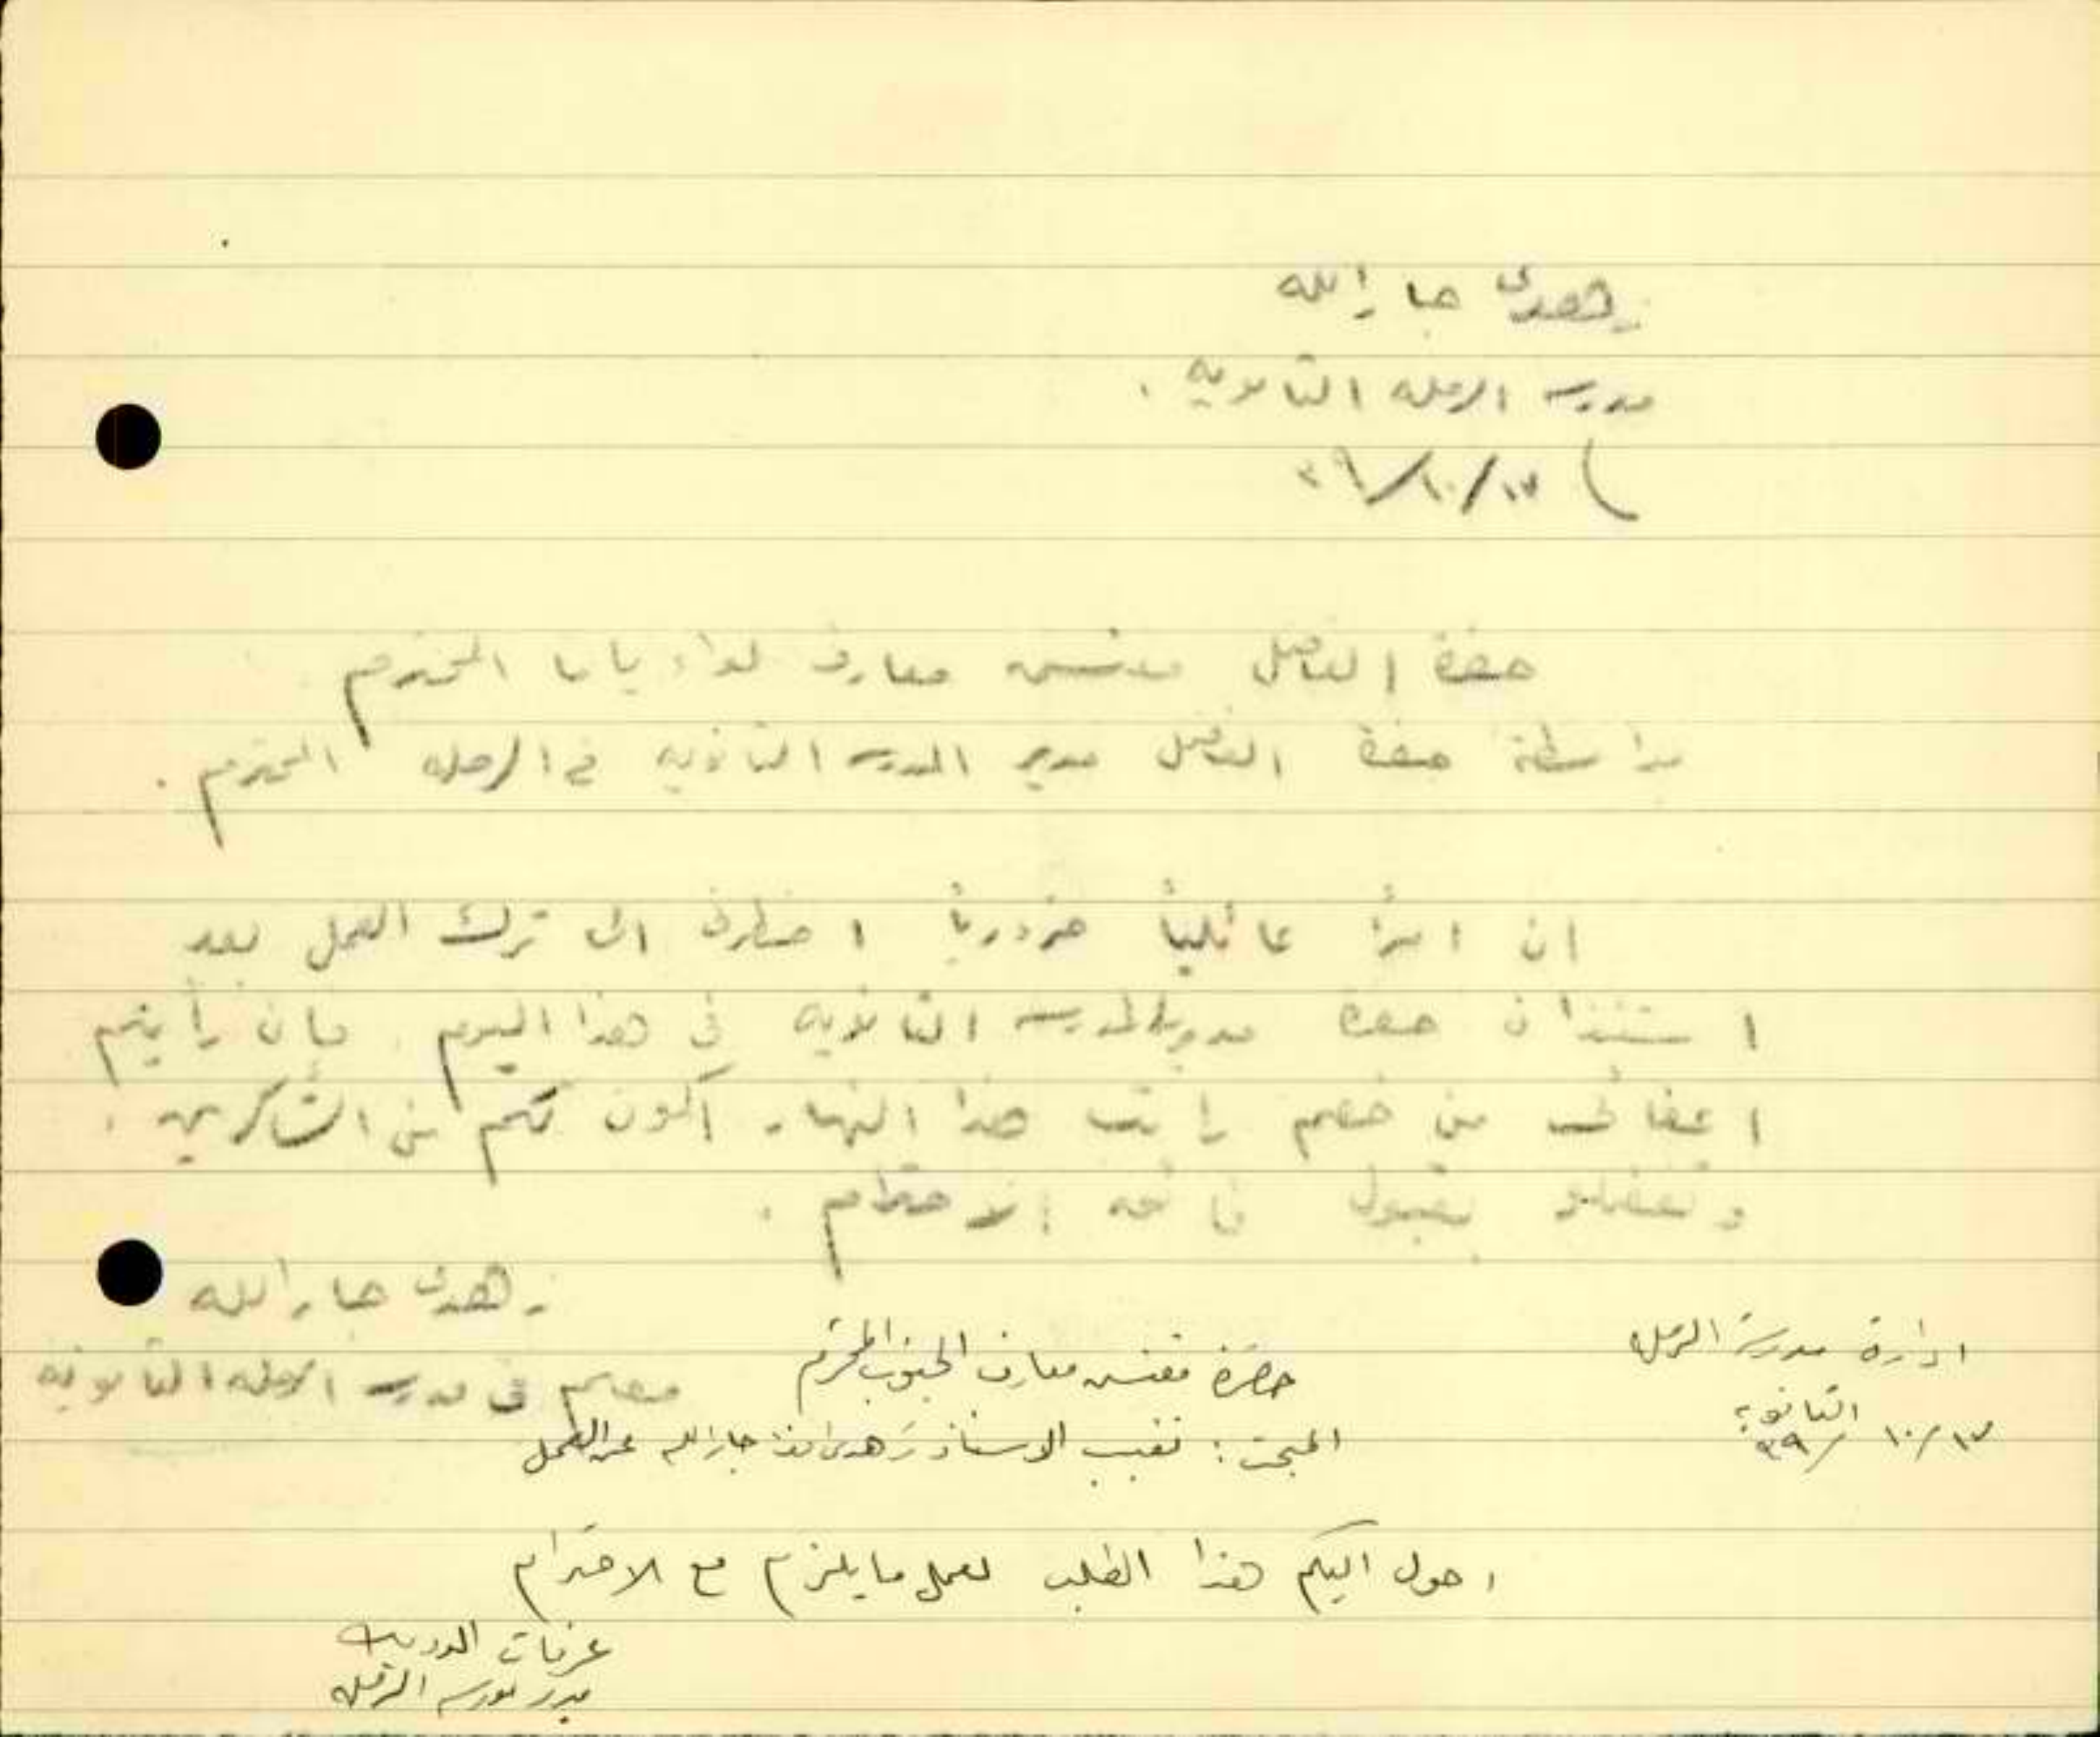 زهدي جارالله
مدرسة الرملة الثانوية .
٣٩/١٠/١٧
حضرة الفاضل مفتش معارف لواء يافا المحترم
بواسطة حضرة الفاضل مدير المدرسة الثانوية في الرملة المحترم .
ان امراً عائلياً ضرورياً اضطرني الى ترك العمل بعد
استئذان حضرة مدير المدرسة الثانوية في هذا اليوم . فان رأيتم
اعفائي من خصم راتب هذا النهار اكون لكم من الشاكرين .
وتفضلوا بقبول فائق الاحترام .
زهدي جارالله
معلم في مدرسة الرملة الثانوية
ادارة مدرسة الرملة
الثانوية
٣٩/١٠/١٧
حضرة مفتش معارف الجنوب المحترم
المبحث : تغيب الاستاذ زهدي افندي جارالله عن العمل
احول اليكم هذا الطلب لعمل ما يلزم مع الاحترام
عرفات الدويك
مدير مدرسة الرملة